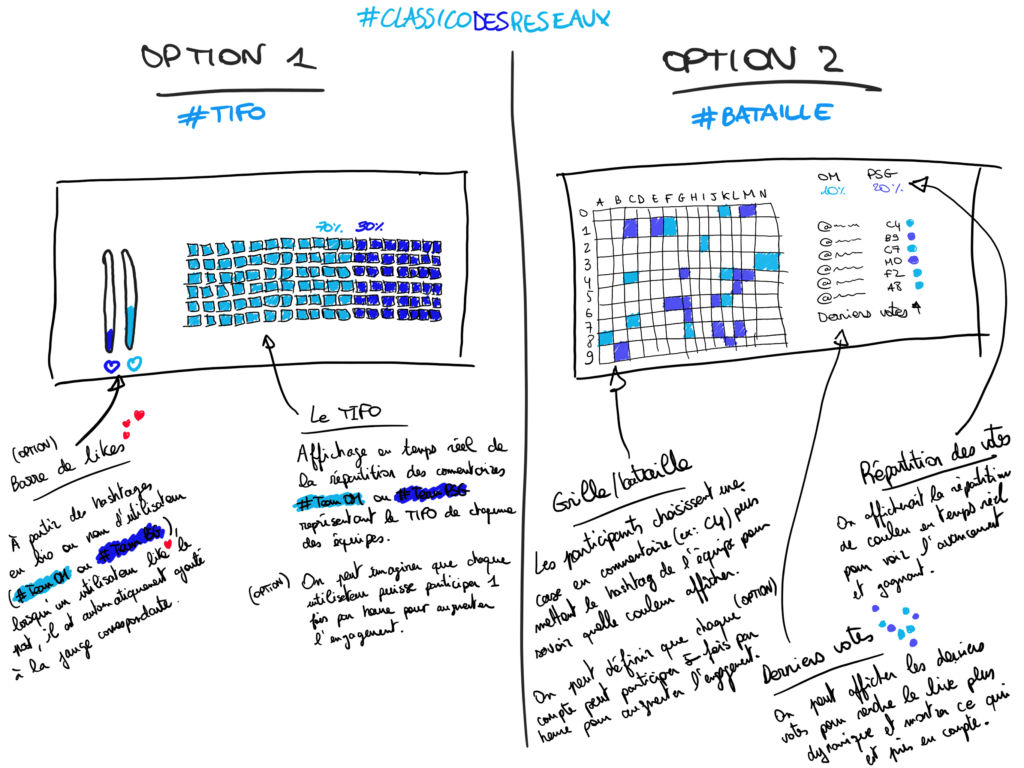 #CLASSICODESRESEAUX
OPTION 1
#TIFO
70% 30%
(OPTION)
Barre de likes
À partir des hashtages
en bio ou nom d'utilisateur
(#Team OM ou #Team PSG),
lorsqu'un utilisateur like le
post, il est automatiquement ajouté
à la jauge correspondante.
Le TIFO
Affichage en temps réel de
la répartition des commentaires
#Team OM ou #Team PSG
représentant le TIFO de chacune
des équipes.
(OPTION) On peut imaginer que chaque
utilisateur puisse participer 1
fois par heure pour augmenter
l'engagement.
OPTION 2
#BATAILLE
A B C D E F G H I J K L M N
0
1
2
3
4
5
6
7
8
9
OM PSG
10% 20%
@ C4
@ B9
@ C7
@ M0
@ F2
@ A8
Derniers votes
Grille/bataille
Les participants choisissent une
case en commentaire (ex: C4) puis
mettent le hashtag de l'équipe pour
savoir quelle couleur afficher.
(OPTION)
On peut définir que chaque
compte peut participer 5 fois par
heure pour augmenter l'engagement.
Répartition des votes
On afficherait la répartition
de couleur en temps réel
pour voir l'avancement
et gagnant.
Derniers votes
On peut afficher les derniers
votes pour rendre le live plus
dynamique et montrer ce qui
est pris en compte.